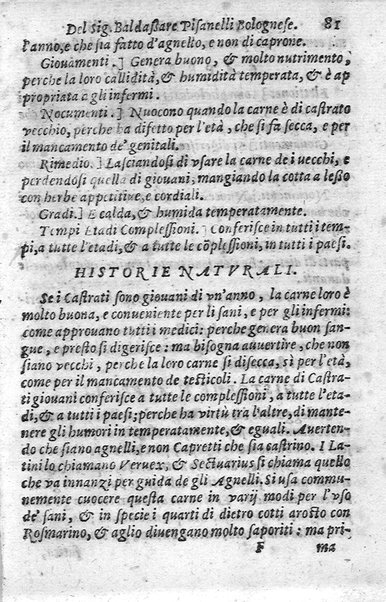 Del Sig. Baldassare Pisanelli Bolognese. 81
l'anno, e che sia fatto d'agnello, e non di caprone.
Giovamenti.] Genera buono, & molto nutrimento,
perche la loro callidità, & humidità temperata, & è ap
propriata a gli infermi.
Nocumenti.] Nuocono quando la carne è di castrato
vecchio, perche ha difetto per l'età, che si fa secca, e per
il mancamento de' genitali.
Rimedio.] Lasciandosi di vsare la carne de i vecchi, e
perdendosi quella di giouani, mangiando la cotta a lesso
con herbe appetitiue, e cordiali.
Gradi.] E calda, & humida temperatamente.
Tempi Etadi Complessioni.] Conferisce in tutti i tem-
pi, a tutte l'etadi, & a tutte le cõplessioni, in tutti i paesi.
HISTORIE NATVRALI.
Se i Castrati sono giouani di vn'anno, la carne loro è
molto buona, e conueniente per li sani, e per gli infermi:
come approuano tutti i medici: perche genera buon san-
gue, e presto si digerisce: ma bisogna auuertire, che non
siano vecchi, perche la loro carne si disecca, sì per l'età,
come per il mancamento de testicoli. La carne di Castra-
ti giouani conferisce a tutte le complessioni, a tutte l'eta-
di, & a tutti i paesi; perche ha virtù tra l'altre, di mante-
nere gli humori in temperatamente, & eguali. Auerten-
do che siano agnelli, e non Capretti che si castrino. I La-
tini lo chiamano Veruex, & Sectuarius si chiama quello
che va innanzi per guida de gli Agnelli. Si vsa commu-
nemente cuocere questa carne in varij modi per l'vso
de' sani, & in specie i quarti di dietro cotti arosto con
Rosmarino, & aglio diuengano molto saporiti: ma pri-
F ma